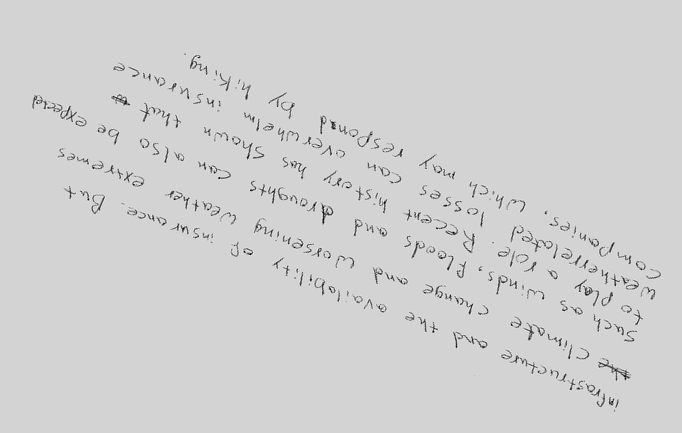 infrastructure and the availability of insurance. But
climate change and worsening weather extremes
such as winds, floods and droughts can also be expected
to play a role. Recent history has shown that
weatherrelated losses can overwhelm insurance
companies, which may respond by hiking.